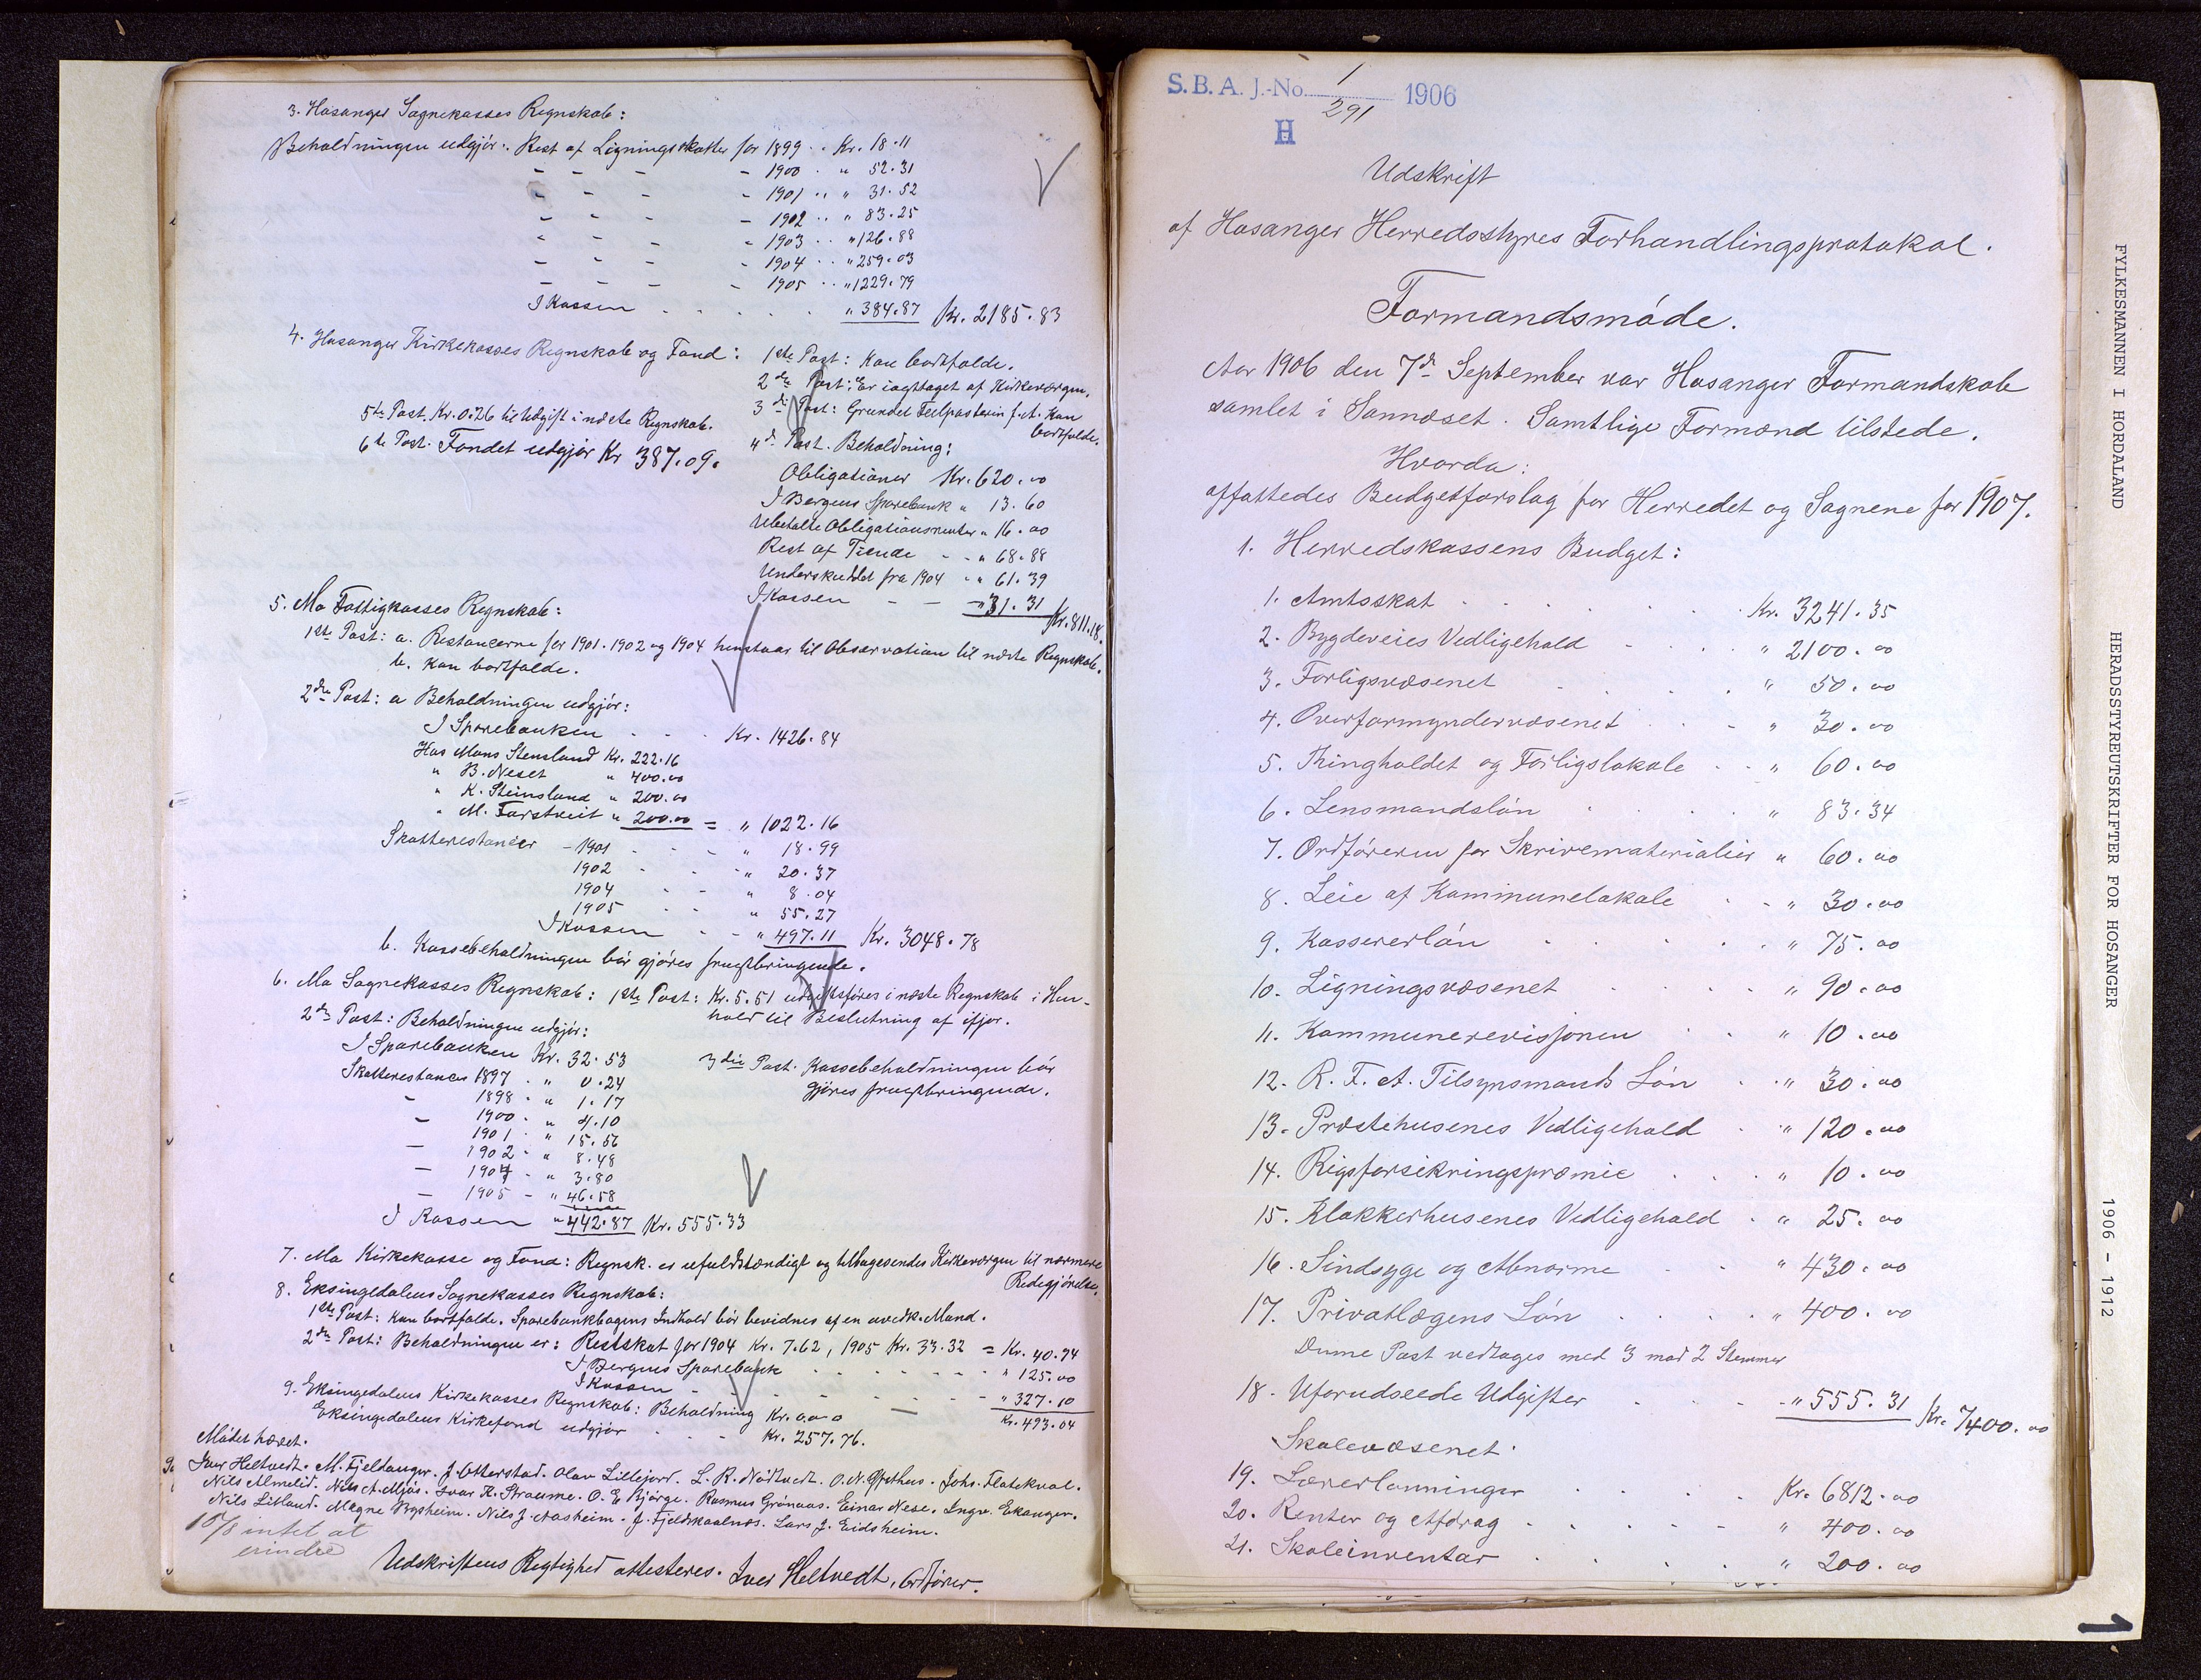 3. Hosanger Sognekasses Regnskab:
Beholdningen udgjør: Rest af Ligningsskatter for 1899 . . Kr. 18.11
- - - - 1900 . " 52.31
- - - - 1901 . . " 31.52
- - - - 1902 . . " 83.25
- - - - 1903 . . " 126.88
- - - - 1904 . . " 259.03
- - - - 1905 . . " 1229.79
I Kassen . . . . . " 384.87 Kr. 2185.83
4. Hosanger Kirkekasses Regnskab og Fond: 1ste Post: Kan bortfalde.
2den Post: Er iagttaget af Kirkeværgen.
3die Post: Grundet Feilposterin f. A. kan
bortfalde.
4de Post. Beholdning:
Obligationer Kr. 620.00
I Bergens Sparebank " 13.60
Ubetalte Obligationsrenter " 16.00
Rest af Tiende - - " 68.88
Underskuddet fra 1904 - " 61.39
I Kassen - - " 31.31 Kr. 811.18.
5te Post. Kr. 0.26 til Udgift i næste Regnskab.
6te Post. Fondet udgjør Kr 387.09.
5. Mo Fattigkasses Regnskab:
1ste Post: a. Restancerne for 1901. 1902 og 1904 henstaar til Observation til næste Regnskab.
b. Kan bortfalde.
2den Post: a Beholdningen udgjør:
I Sparebanken - - . Kr. 1426.84
Hos Mons Stensland Kr. 222.16
" B. Neset " 400.00
" K. Steinsland " 200.00
" M. Farstveit " 200.00 = " 1022.16
Skatterestancer - 1901 - - - " 18.99
1902 - - - " 20.37
1904 - - " 8.04
1905 - - " 55.27
I Kassen - - " 497.11 Kr. 3048.78
b. Kassebeholdningen bør gjøres frugtbringende.
6. Mo Sognekasses Regnskab: 1ste Post: Kr. 5.51 udgiftsføres i næste Regnskab i Hen-
hold til Beslutning af ifjor.
2den Post: Beholdningen udgjør:
I Sparebanken Kr. 32.53
Skatterestancer 1897 . " 0.24
- 1898 . " 1.17
- 1900 . " 4.10
1901 . " 15.56
- 1902 - " 8.48
- 1904 - " 3.80
- 1905 - " 46.58
I Kassen " 442.87 Kr. 555.33
3die Post. Kassebeholdningen bør
gjøres frugtbringende.
7. Mo Kirkekasse og Fond: Regnsk. er ufuldstændigt og tilbagesendes Kirkeværgen til nærmere
Redegjørelse.
8. Eksingedalens Sognekasses Regnskab:
1ste Post: Kan bortfalde. Sparebankbogens Indhold bør bevidnes af en uvedk. Mand.
2den Post: Beholdningen er: Restskat for 1904 Kr. 7.62, 1905 Kr. 33.32 = Kr. 40.94
I Bergens Sparebank . . . . . . . " 125.00
I Kassen - - - - - - " 327.10
Kr. 493.04
9. Eksingedalens Kirkekasses Regnskab: Beholdning Kr. 0.00
Eksingedalens Kirkefond udgjør - - - Kr. 257.76.
Mødet hævet.
Iver Heltvedt. M. Fjeldanger. J. Otterstad. Olav Lillejord. L. R. Nødtvedt. O. N. Gjethus. Johs. Flatekval.
Nils Almelid. Nils A. Mjøs. Ivar K. Straume. O. E Bjørge. Rasmus Grønaas. Einar Nese. Ingv. Ekanger.
Nils Litland. Magne Mysheim. Nils J. Aasheim. J. Fjeldskaalnæs. Lars J. Eidsheim.
10/8 intet at
erindre
Udskriftens Rigtighed attesteres. Iver Heltvedt, Ordfører.
S. B. A. J.-No. 1/291 1906
H
Udskrift
af Hosanger Herredsstyres Forhandlingsprotokol.
Formandsmøde.
Aar 1906 den 7de September var Hosanger Formandskab
samlet i Sannæset. Samtlige Formænd tilstede.
Hvorda:
affattedes Budgetforslag for Herredet og Sognene for 1907.
1. Herredskassens Budget:
1. Amtsskat . . . . . Kr. 3241.35
2. Bygdeveies Vedligehold - . . . " 2100.00
3. Forligsvæsenet . . . . " 50.00
4. Overformyndervæsenet . . - " 30.00
5. Thingholdet og Forligslokale - - " 60.00
6. Lensmandsløn . . . . " 83.34
7. Ordføreren for Skrivematerialier " 60.00
8. Leie af Kommunelokale . - " 30.00
9. Kassererløn . . . . . " 75.00
10. Ligningsvæsenet . . . . " 90.00
11. Kommunerevisjonen . . " 10.00
12. R. F. A. Tilsynsmands Løn . " 30.00
13. Præstehusenes Vedligehold . " 120.00
14. Rigsforsikringspræmie . . . " 10.00
15. Klokkerhusenes Vedligehold . " 25.00
16. Sindsyge og Abnorme - . " 430.00
17. Privatlægens Løn . . . . " 400.00
Denne Post vedtages med 3 mod 2 Stemmer
18. Uforudseede Udgifter . . . - " 555.31 Kr. 7400.00
Skolevæsenet.
19. Lærerlønninger . . . . Kr. 6812.00
20. Renter og Afdrag . . . . - " 400.00
21. Skoleinventar . . . . " 200.00
FYLKESMANNEN I HORDALAND
HERADSSTYREUTSKRIFTER FOR HOSANGER
1906 - 1912
1